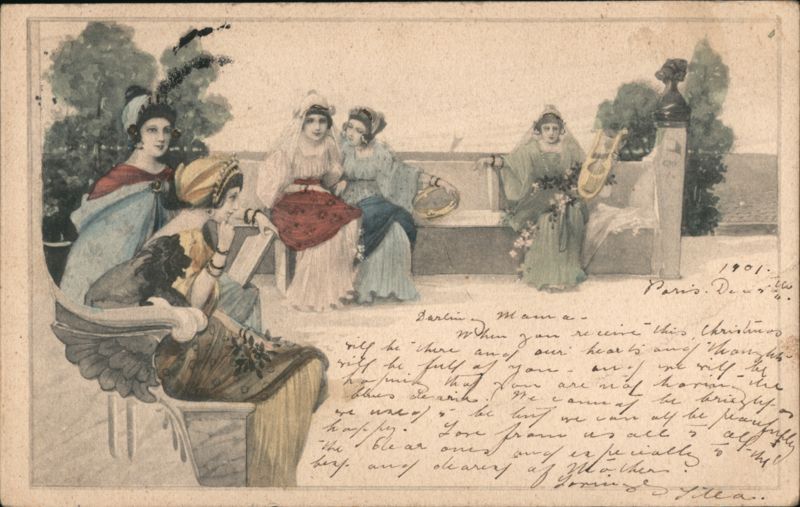 1901.
Paris. Dec 5th
Darling Mama -
When you receive this Christmas
will be here and our hearts and thoughts
will be full of you - and we will be
hoping that you are not having the
blues dearie. We cannot be brightly
we used to be but we can all be peacefully
happy. Love from us all to all
the dear ones and especially to the
best and dearest of Mothers.
Loving